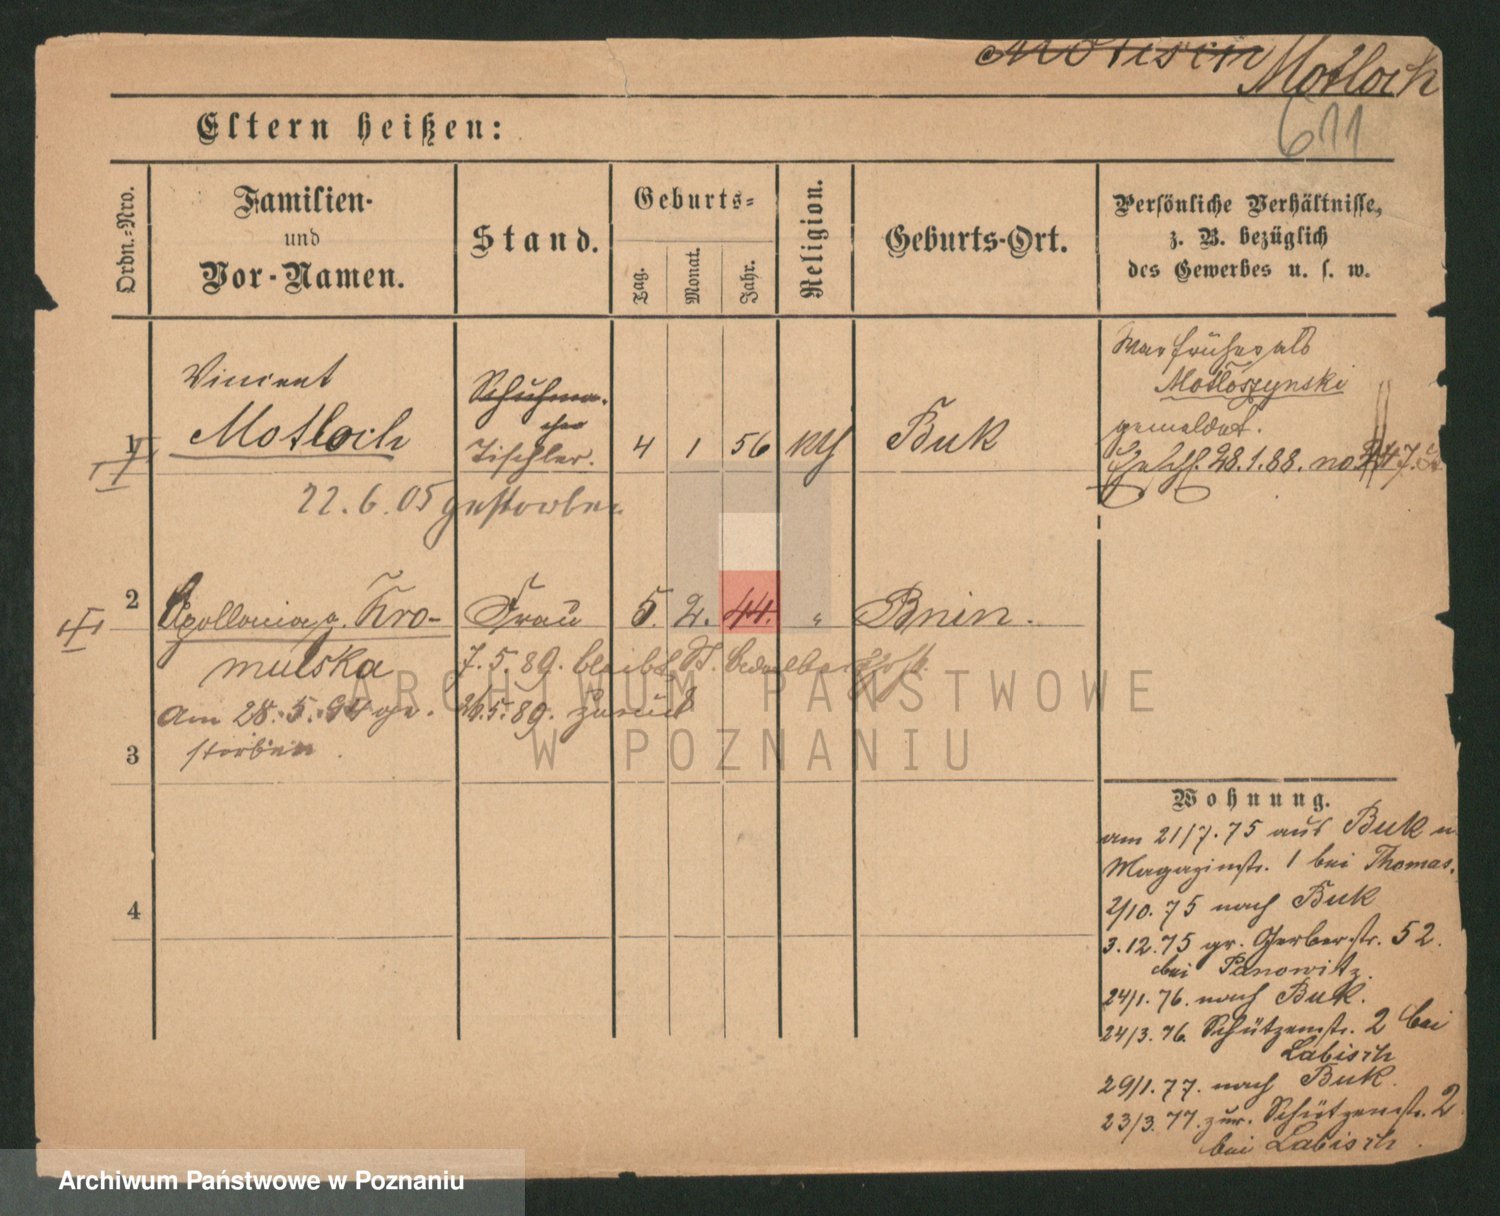 Motloch
611
Eltern heißen:
Ordn.-Nro.
Familien-
und
Vor-Namen.
Stand.
Geburts-
Tag.
Monat.
Jahr.
Religion.
Geburts-Ort.
Persönliche Verhältnisse,
z. B. bezüglich
des Gewerbes u. s. w.
1
Vincent
Motloch
Schuhma-
cher
Tischler.
4 1 56 kth
Buk
War früher als
Motloszynski
gemeldet.
28.1.88. no
22.6.05 gestorben
2
Apollonia g. Kro-
mulska
Frau
5. 2. 44. "
Bnin.
7.5.89. bleibt
26.5.89. zurück
am 28.5.94 ge-
storben.
3
4
Wohnung.
am 21/7.75 aus Buk n.
Magazinstr. 1 bei Thomas.
2/10.75 nach Buk
3.12.75 gr. Gerberstr. 52.
bei Panowitz.
24/1.76. nach Buk.
24/3.76. Schützenstr. 2 bei
Labisch
29/1.77. nach Buk.
23/3.77. zur. Schützenstr. 2
bei Labisch.
ARCHIWUM PAŃSTWOWE
W POZNANIU
Archiwum Państwowe w Poznaniu